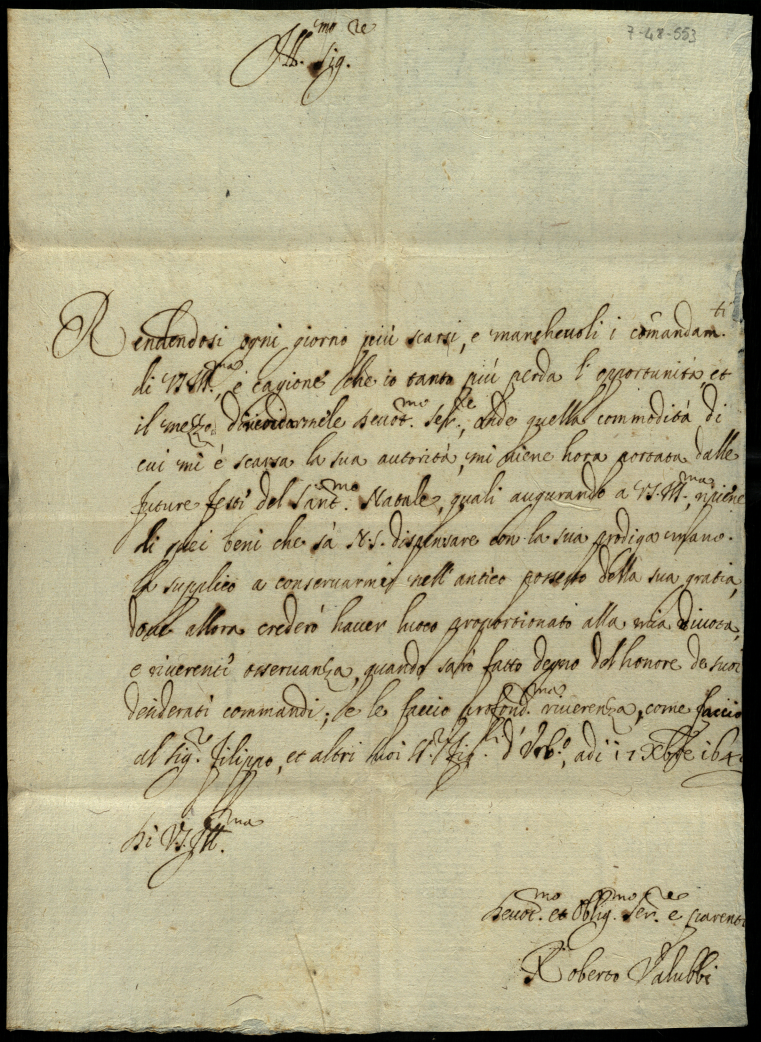 7-48-553
Ill.mo Sig.re
Rendendosi ogni giorno più scarsi, e manchevoli i comandam.ti
di V.S.Ill.ma, è cagione che io tanto più perda l'opportunità, et
il mezzo di ricordarmele devot.mo ser.re, onde quella commodità di
cui mi è scarsa la sua autorità, mi viene hora portata dalle
future feste del Sant.mo Natale, quali augurando a V.S.Ill.ma ripiene
di quei beni che sà N.S. dispensare con la sua prodiga mano.
la supplico a conservarmi nell'antico possesso della sua gratia,
dove allora crederò haver luoco proportionato alla mia divota,
e riverente osservanza, quando sarò fatto degno del honore de suoi
desiderati commandi; e le faccio profond.ma riverenza, come faccio
al Sig.r Filippo, et altri suoi SS.ri fig.li d'Urb.o, adi 17 Xbre 164
Di V.S.Ill.ma
Devot.mo et Oblig.mo Ser.re e parente
Roberto